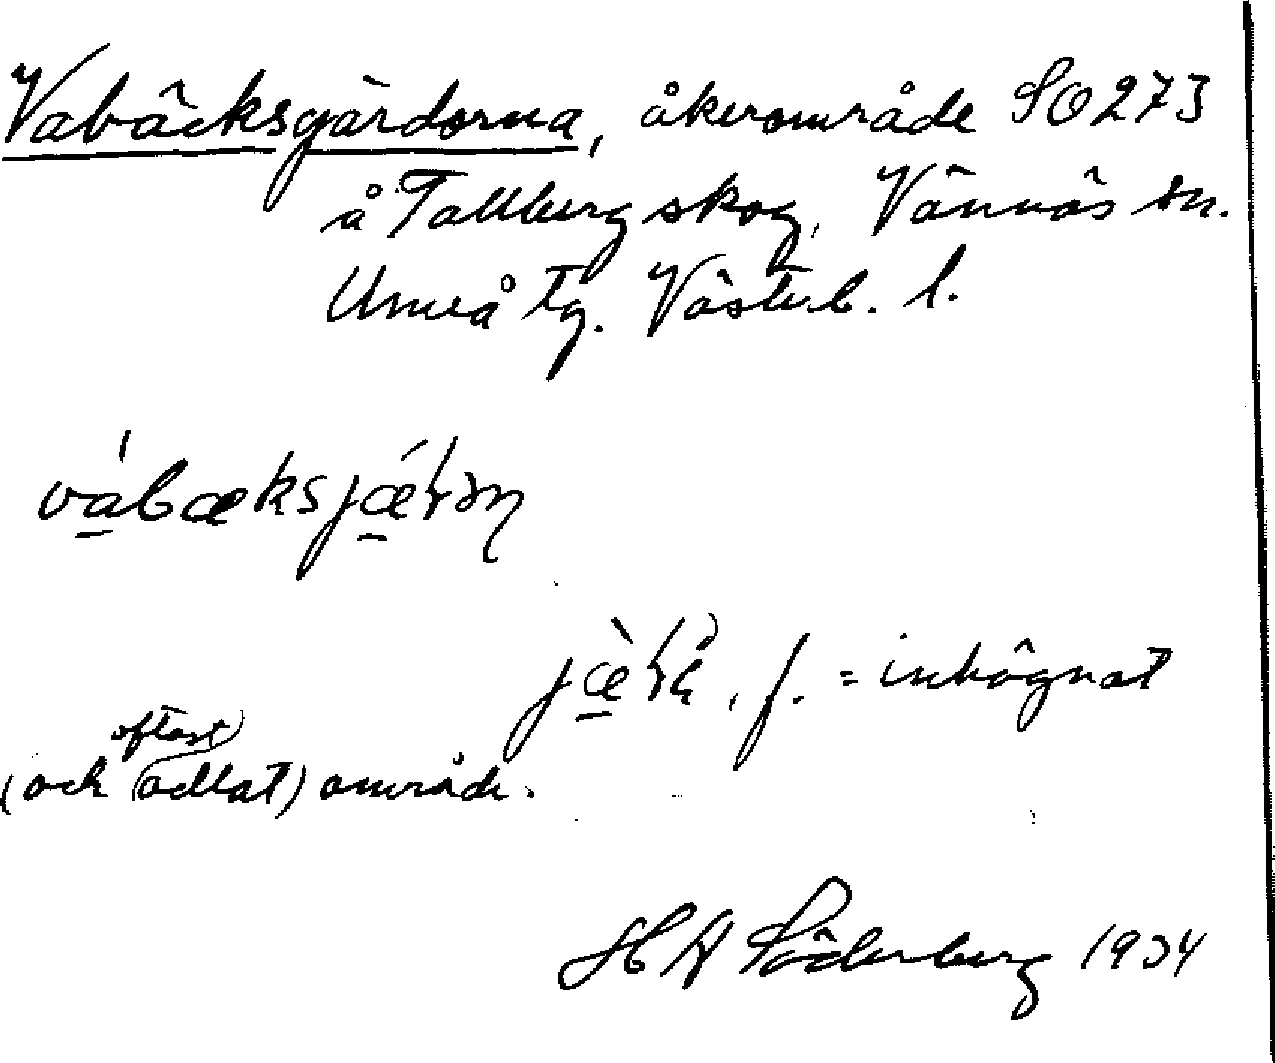 Vabäcksgärdorna, åkerområde SO 273
å Tallberg skog, Vännäs sn.
Umeå tg. Västerb. l.
vábæksjǽ
f. = inhägnat
(och (oftast) odlat) område.
H A Söderberg 1934